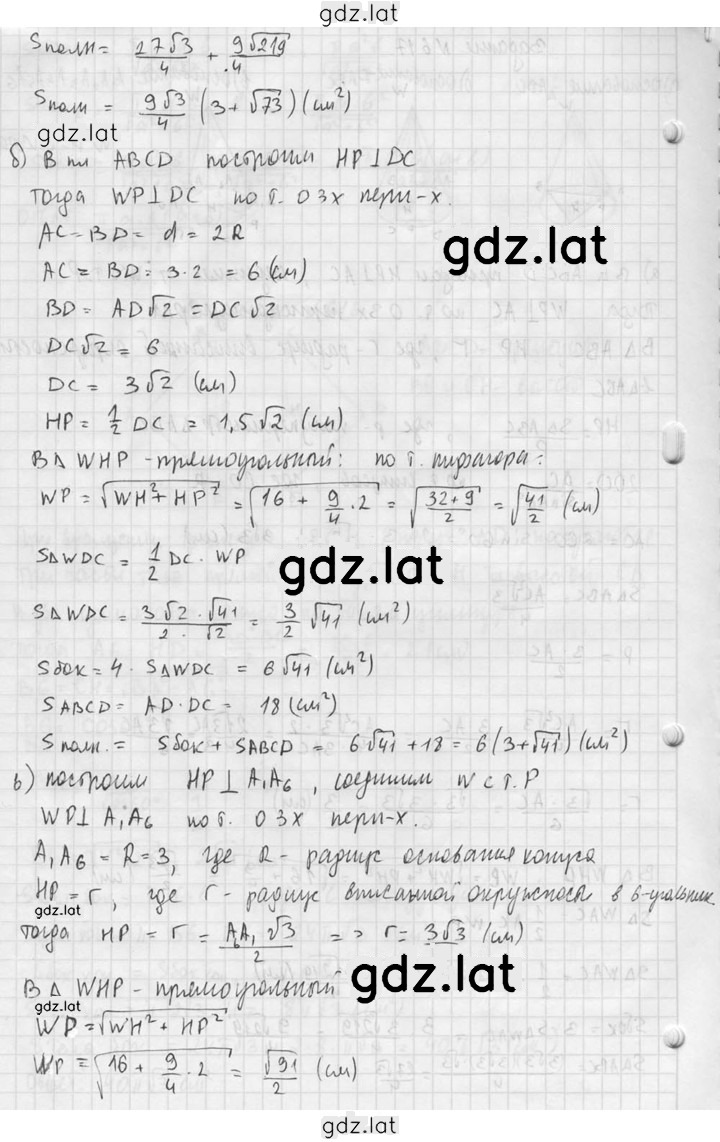 gdz.lat
Sполн = 27√3/4 + 9√219/4
Sполн = 9√3/4 (3+√73) (см²)
gdz.lat
б) В пл ABCD построим HP⊥DC
тогда WP⊥DC по т. О 3х перп-х.
AC=BD= d = 2R
gdz.lat
AC = BD = 3·2 = 6 (см)
BD = AD√2 = DC√2
DC√2 = 6
DC = 3√2 (см)
HP = 1/2 DC = 1,5√2 (см)
В Δ WHP - прямоугольный: по т. пифагора:
WP = √(WH²+HP²) = √(16 + 9/4 · 2) = √((32+9)/2) = √(41/2) (см)
SΔWDC = 1/2 DC · WP
gdz.lat
SΔWDC = (3√2 · √41)/(2 · √2) = 3/2 √41 (см²)
Sбок = 4 · SΔWDC = 6√41 (см²)
SABCD = AD·DC = 18 (см²)
Sполн. = Sбок + SABCD = 6√41 + 18 = 6(3+√41) (см²)
в) построим HP⊥A₁A₆, соединим W с т. P
WP⊥A₁A₆ по т. О 3х перп-х.
A₁A₆ = R=3, где R- радиус основания конуса
HP = r, где r- радиус вписанной окружносы в 6-угольник
gdz.lat
тогда HP = r = A₆A₁√3/2 => r = 3√3 (см)
В Δ WHP - прямоугольный
gdz.lat
gdz.lat
WP = √(WH² + HP²)
WP = √(16 + 9/4 · 2) = √91/2 (см)
gdz.lat